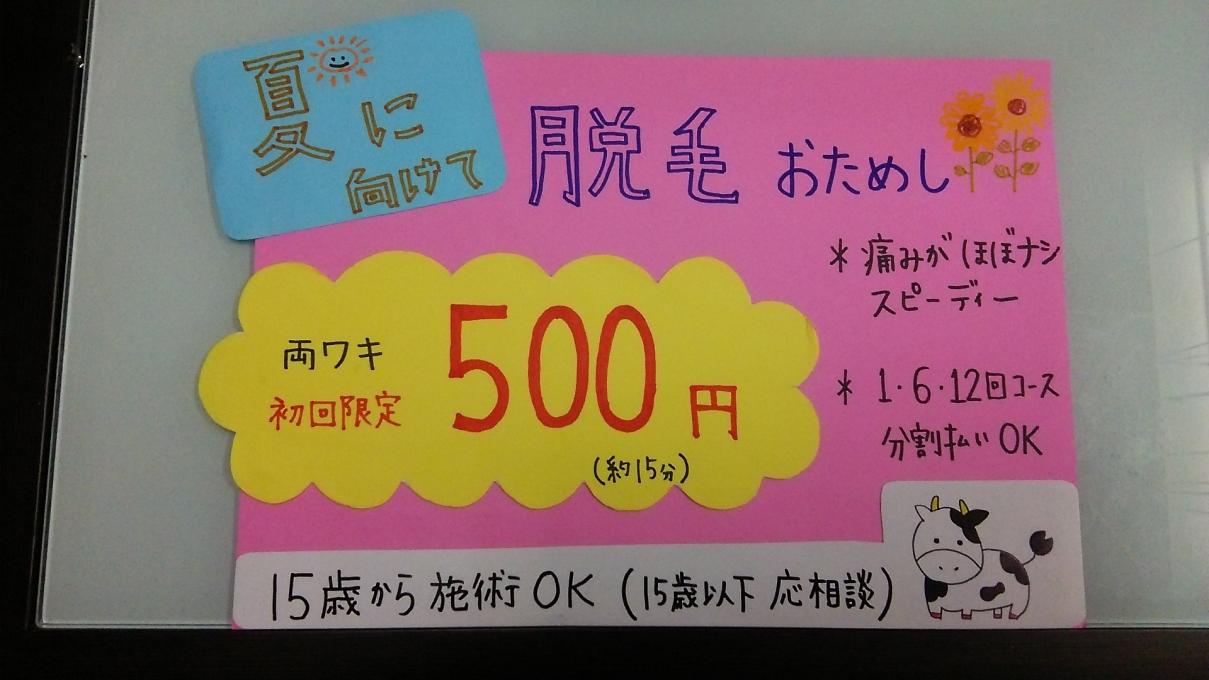 夏に
向けて
脱毛 おためし
両ワキ
初回限定
500円
(約15分)
＊痛みがほぼナシ
スピーディー
＊1・6・12回コース
分割払いOK
15歳から施術OK(15歳以下 応相談)